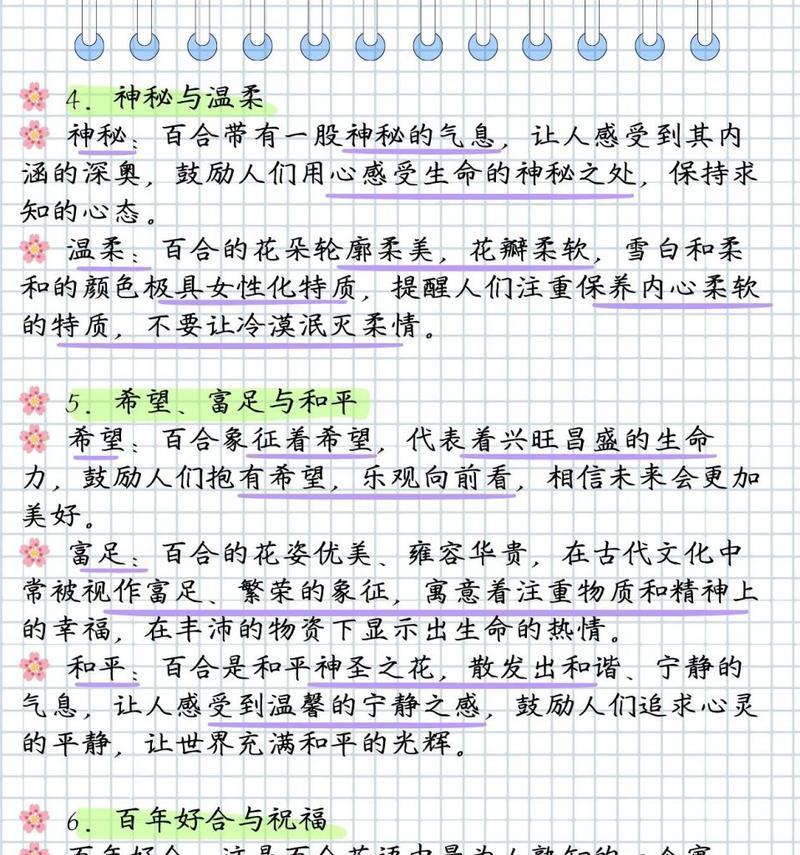 4. 神秘与温柔
神秘：百合带有一股神秘的气息，让人感受到其内
涵的深奥，鼓励人们用心感受生命的神秘之处，保持求
知的心态。
温柔：百合的花朵轮廓柔美，花瓣柔软，雪白和柔
和的颜色极具女性化特质，提醒人们注重保养内心柔软
的特质，不要让冷漠泯灭柔情。
5. 希望、富足与和平
希望：百合象征着希望，代表着兴旺昌盛的生命
力，鼓励人们抱有希望，乐观向前看，相信未来会更加
美好。
富足：百合的花姿优美、雍容华贵，在古代文化中
常被视作富足、繁荣的象征，寓意着注重物质和精神上
的幸福，在丰沛的物资下显示出生命的热情。
和平：百合是和平神圣之花，散发出和谐、宁静的
气息，让人感受到温馨的宁静之感，鼓励人们追求心灵
的平静，让世界充满和平的光辉。
6. 百年好合与祝福